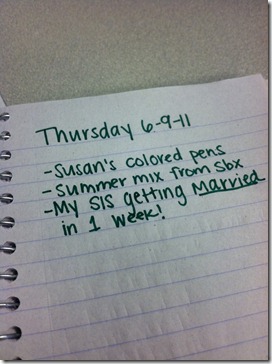 Thursday 6-9-11
-Susan's colored pens
-Summer mix from Sbx
-My SIS getting Married
in 1 week!